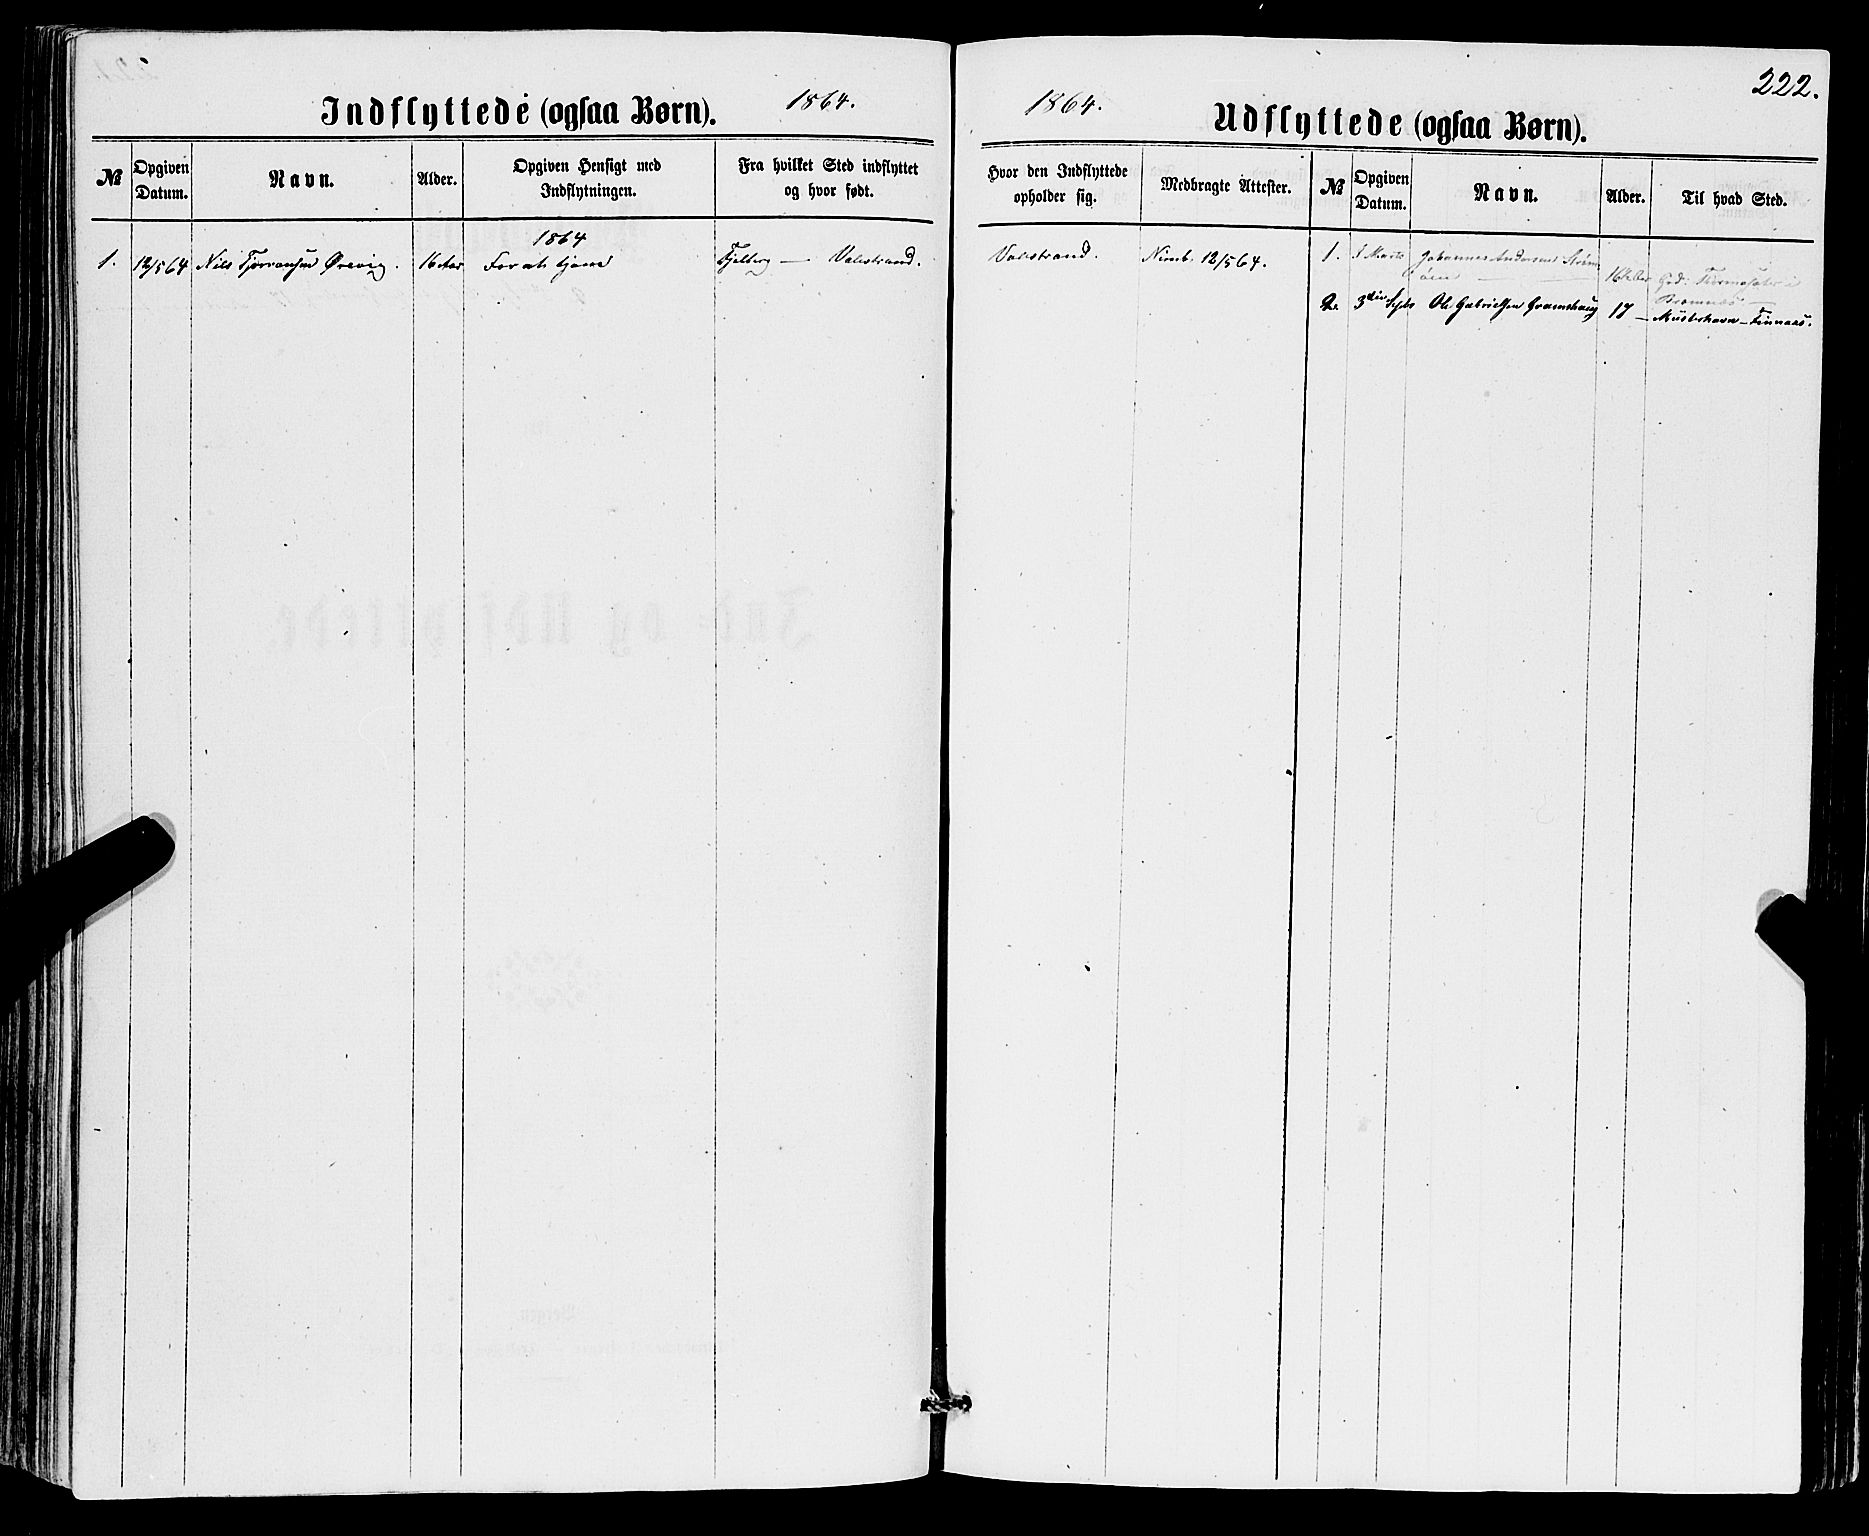 222.
Indflyttede (ogsaa Børn). 1864.
№ Opgiven Datum. Navn. Alder. Opgiven Hensigt med Indflytningen. Fra hvilket Sted indflyttet og hvor født.
1864
1. 12/5 64 Nils Ørevig. 16 Aar For at tjene Fjelberg — Valestrand.
1864. Udflyttede (ogsaa Børn).
Hvor den Indflyttede opholder sig. Medbragte Attester. № Opgiven Datum. Navn. Alder. Til hvad Sted.
Valestrand. 12/5 64. 1. Marts Johannes Andersen
øen
Bremnæs —
2. 3die Septb Ole Gabrielsen Gramshaug 17 — Mosterhavn — Finnaas.